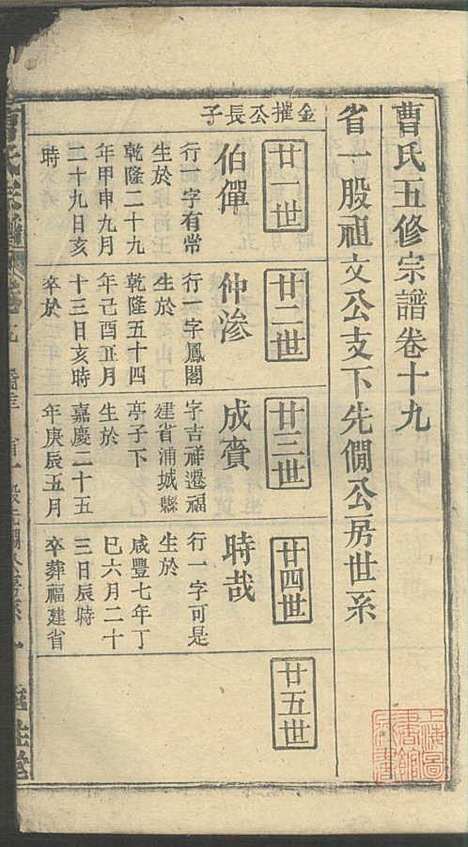 曹氏五修宗譜卷十九
省一股祖文公支下先僩公房世系
廿一世
廿二世
廿三世
廿四世
廿五世
金摧公長子
伯僤
行一字有常
生於
乾隆二十九
年甲申九月
二十九日亥
時
仲滲
行一字鳳閣
生於
乾隆五十四
年己酉正月
十三日亥時
卒於
成賚
字吉祥遷福
建省浦城縣
亭子下
生於
嘉慶二十五
年庚辰五月
時哉
行一字可是
生於
咸豐七年丁
巳六月二十
三日辰時
卒葬福建省
上海圖書館藏書